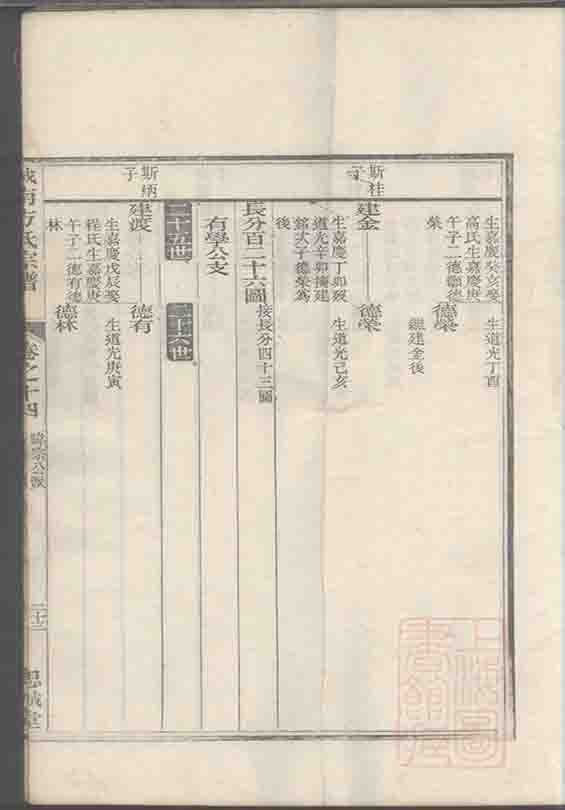 生嘉慶癸亥娶
高氏生嘉慶庚
午子二德顯德
榮
生道光丁酉
德榮
繼建金後
斯桂
子
建金
德榮
生嘉慶丁卯歿
道光辛卯撫建
銘次子德榮為
後
生道光己亥
長分百二十六圖
接長分四十三圖
有學公支
二十五世
二十六世
斯炳
子
建渡
德有
生嘉慶戊辰娶
程氏生嘉慶庚
午子二德有德
林
生道光庚寅
德林
城南方氏宗譜
卷之十四
公派
二十二
思誠堂
上海圖
書館藏